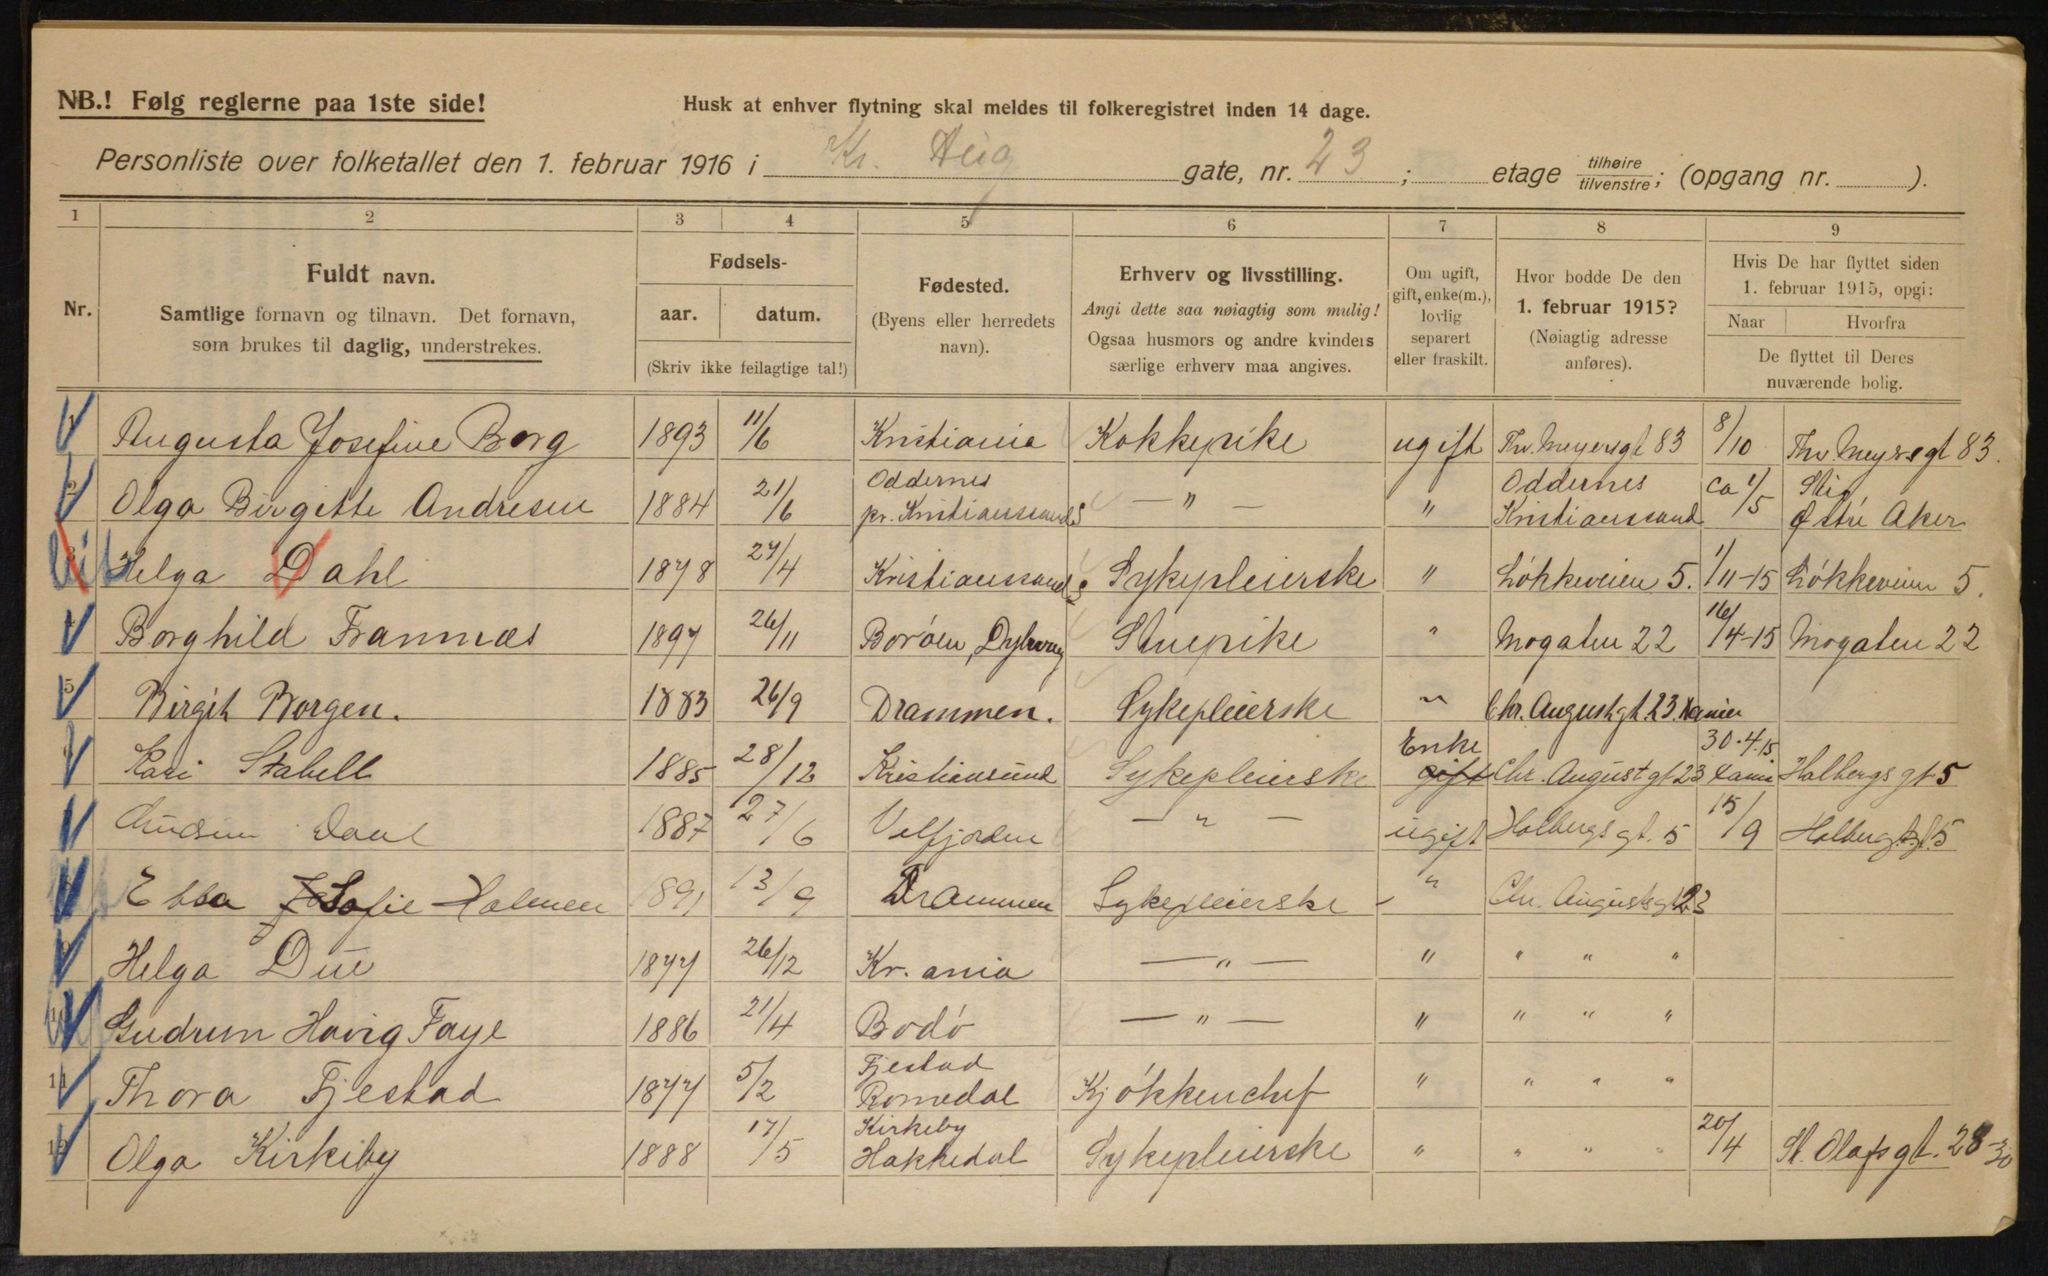 NB.! Følg reglerne paa 1ste side!
Husk at enhver flytning skal meldes til folkeregistret inden 14 dage.
Personliste over folketallet den 1. februar 1916 i Kr. Aug gate, nr. 23 ; etage tilhøire / tilvenstre; (opgang nr. ).
1 2 3 4 5 6 7 8 9
Nr.
Fuldt navn.
Samtlige fornavn og tilnavn. Det fornavn,
som brukes til daglig, understrekes.
Fødsels-
aar. datum.
(Skriv ikke feilagtige tal!)
Fødested.
(Byens eller herredets
navn).
Erhverv og livsstilling.
Angi dette saa nøiagtig som mulig!
Ogsaa husmors og andre kvinders
særlige erhverv maa angives.
Om ugift,
gift, enke(m.),
lovlig
separert
eller fraskilt.
Hvor bodde De den
1. februar 1915?
(Nøiagtig adresse
anføres).
Hvis De har flyttet siden
1. februar 1915, opgi:
Naar Hvorfra
De flyttet til Deres
nuværende bolig.
1 Augusta Josefine Borg 1893 11/6 Kristiania Kokkepike ugift Thv. Meyersgt 83 8/10 Thv Meyrsgt 83.
2 Olga Birgitte Andresen 1884 21/6 Oddernes pr. Kristianssand S — " — " Oddernes Kristianssand ca 1/5 Østre Aker
3 Helga Dahl 1878 27/4 Kristianssand S Sykepleierske " Løkkeveien 5. 1/11-15 Løkkeveien 5.
4 Borghild Framnæs 1897 26/11 Borøen, Dybvaag Stuepike " Mogaten 22 16/4-15 Mogaten 22
5 Birgit Borgen. 1883 26/9 Drammen. Sykepleierske " Chr. Augustgt. 23.
6 Kari Stabell 1885 28/12 Kristiansund Sykepleierske Enke gift Chr. Augustgt 23 30.4.15 Holbergsgt 5
Daae 1887 27/6 Velfjorden — " — ugift Holbergsgt. 5 15/9 Holbergsgt. 5
8 Ebba Sofie Holmen 1891 13/9 Drammen Sykepleierske " Chr. Augustsgt 23
9 Helga Due 1877 26/12 Kr.ania — " — " " " "
10 Gudrun Havig Faye 1886 21/4 Bodø — " — " " " "
11 Thora Fjestad 1877 5/2 Fjestad Romedal Kjøkkenchef " " " "
12 Olga Kirkeby 1888 17/5 Kirkeby Hakkedal Sykepleierske " " " " 20/4 St. Olafsgt. 28-30